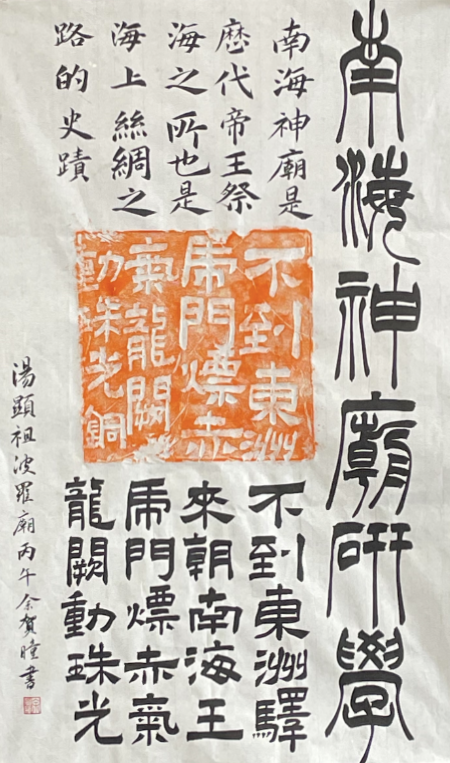 南海神廟研學
南海神廟是
歷代帝王祭
海之所也是
海上絲綢之
路的史蹟
不到東洲
虎門熛赤
氣龍闕
動珠光銅
不到東洲驛
來朝南海王
虎門熛赤氣
龍闕動珠光
湯顯祖波羅廟丙午余賀曈書